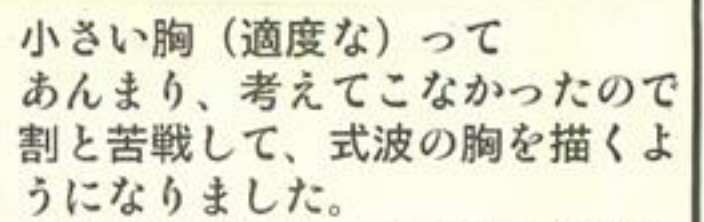 小さい胸（適度な）って
あんまり、考えてこなかったので
割と苦戦して、式波の胸を描くよ
うになりました。